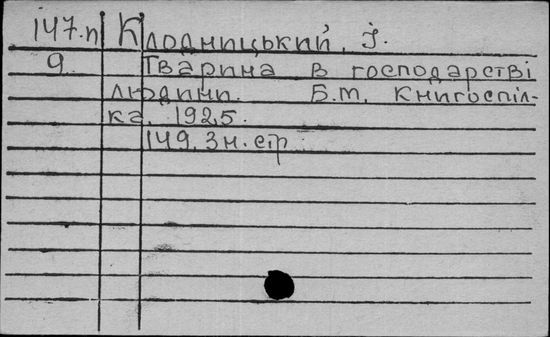 147.п Клодницький, І.
9 Тварина в господарстві
людини. Б.м. Книгоспіл-
ка, 1925.
149, 3 н. стр.